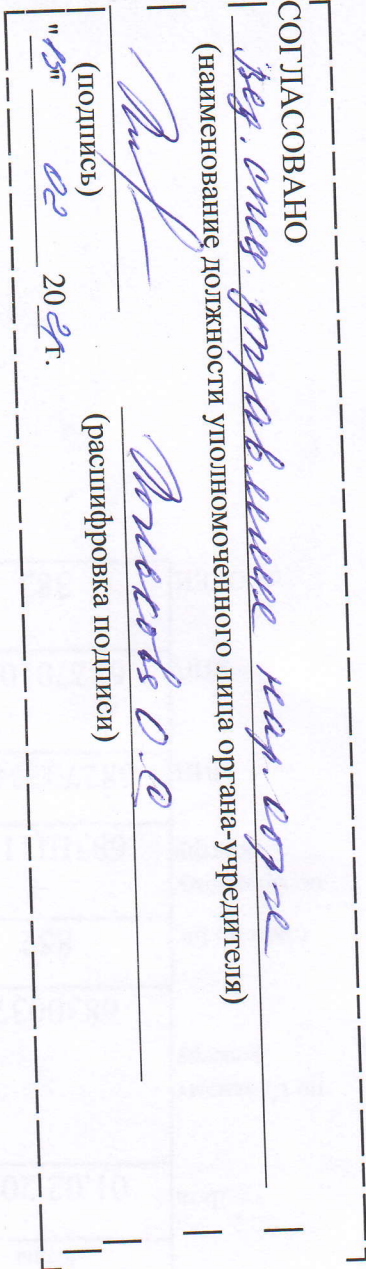 СОГЛАСОВАНО
Вед. спец. управления нар.
(наименование должности уполномоченного лица органа-учредителя)
(подпись)
(расшифровка подписи)
"15" 02 20 г.